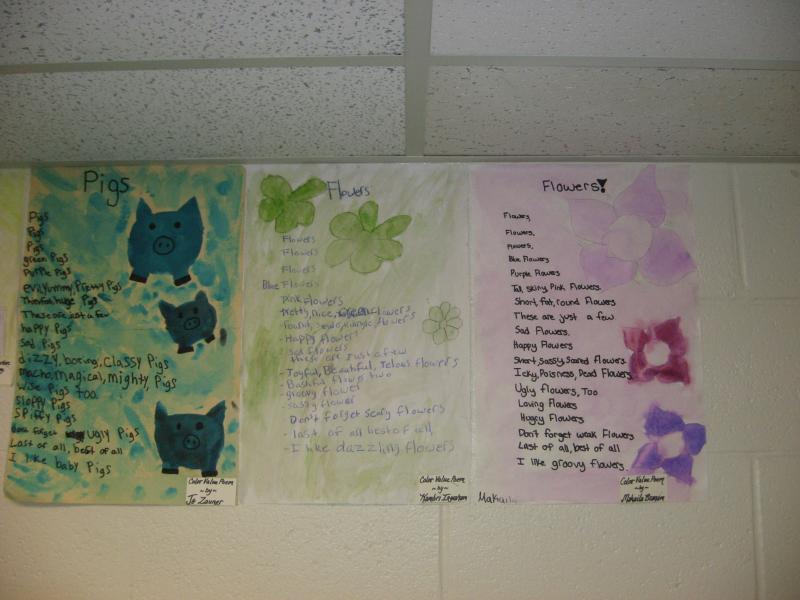 Pigs
Pigs
Pigs
Pigs
green Pigs
Purple Pigs
evil, yummy, Pretty Pigs
huge Pigs
These are just a few
happy Pigs
Sad Pigs
dizzy, boring, Classy Pigs
macho, magical, mighty, Pigs
Wise Pigs too
Sloppy Pigs
Spiffy Pigs
forget ugly Pigs
Last of all, best of all
I like baby Pigs
Color Value Poem
~by~
Jo Zauner
Flowers
Flowers
Flowers
Flowers
Blue Flowers
Pink Flowers
Pretty, nice, flowers
flowers
-Happy Flower
Sad flowers
these are just a few
-Joyful, Beautiful, Jelous flowers
-Bashful flower two
-groovy flower
-sassy flower
Don't forget Scary flowers
-last of all best of all,
-I like dazzling flowers
Color Value Poem
~by~
Flowers!
Flowers,
Flowers,
Flowers,
Blue Flowers
Purple Flowers
Tall, Skiny, Pink Flowers.
Short, fat, round Flowers
These are just a few
Sad Flowers.
Happy Flowers
Short, Sassy, Scared Flowers.
Icky, Poisness, Dead Flowers
Ugly flowers, Too
Loving Flowers
Huggy Flowers
Don't forget weak Flowers
Last of all, best of all
I like groovy flowers.
Makaila
Color Value Poem
~by~
Makaila